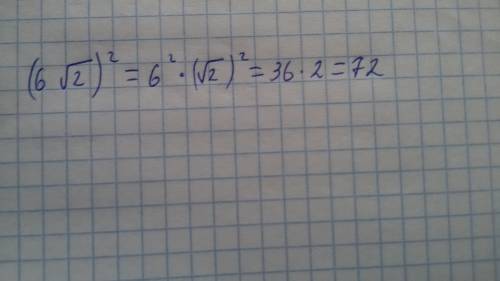 (6 √2)² = 6² · (√2)² = 36 · 2 = 72